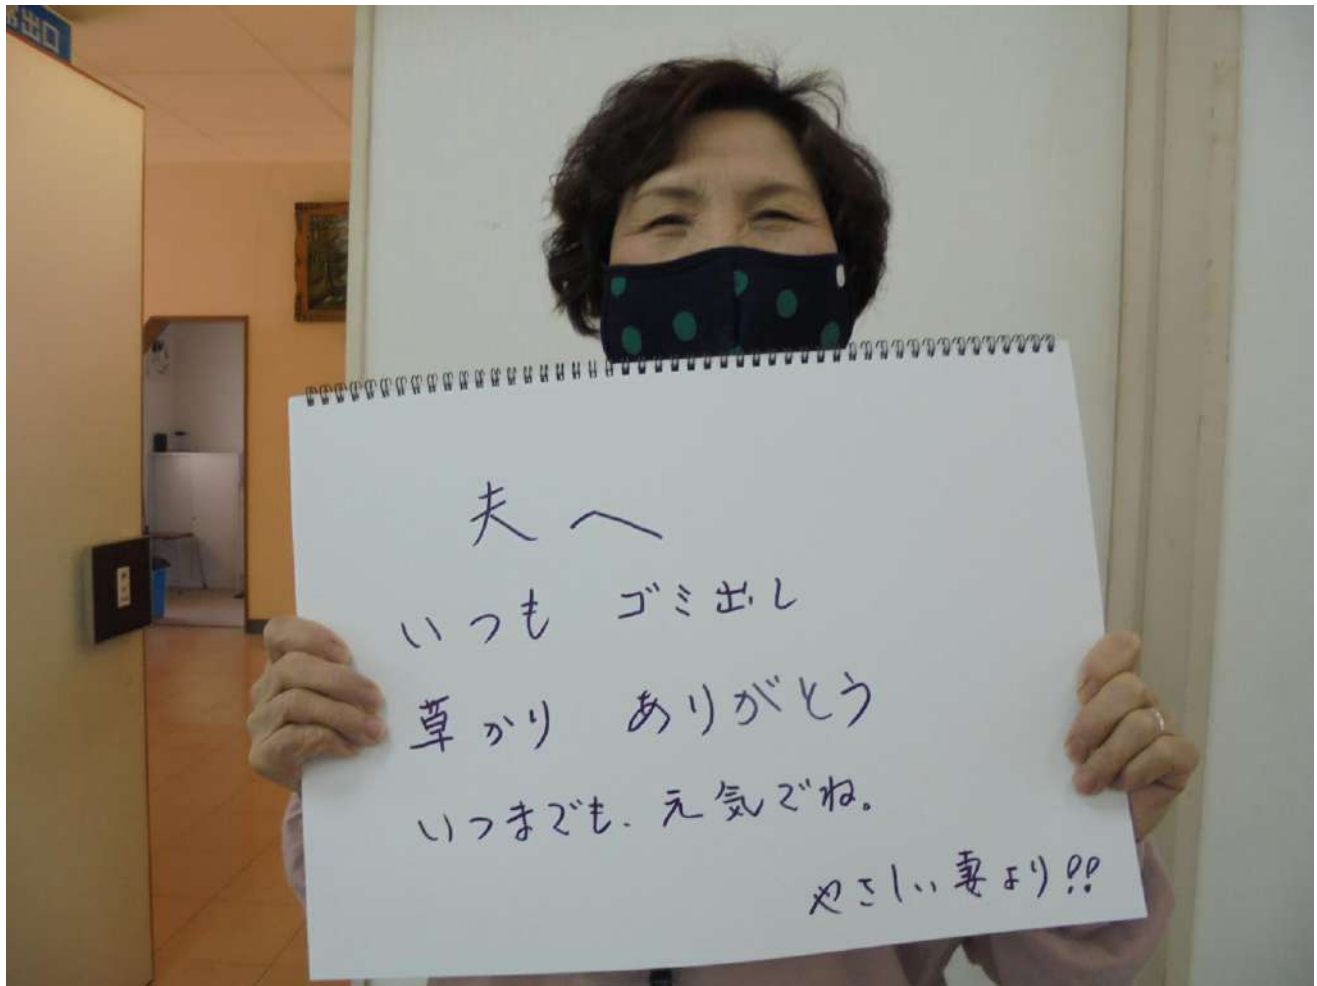 常出口
夫へ
いつも ゴミ出し
草かり ありがとう
いつまでも、元気でね。
やさしい妻より!!